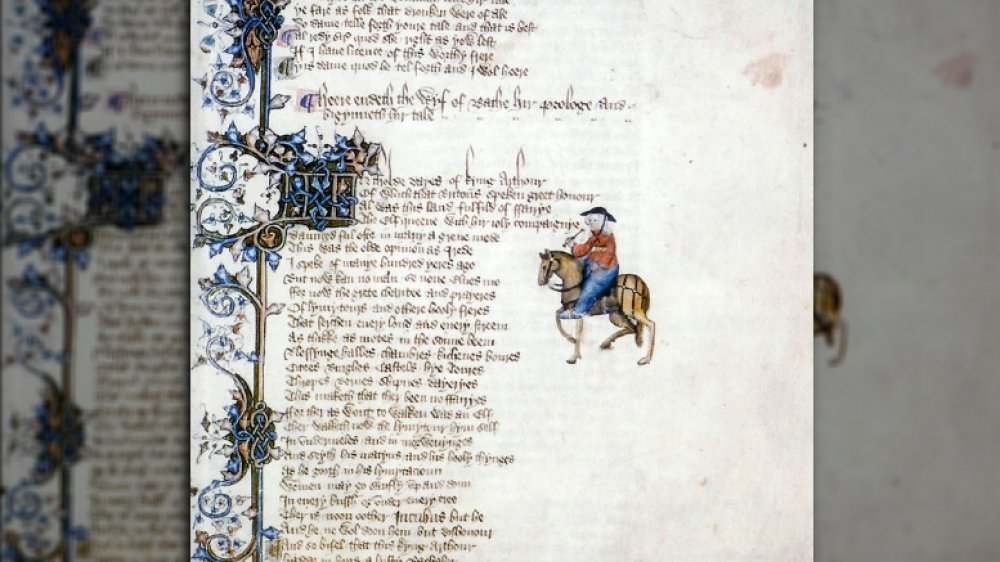 ye fare as folk that dronken were of ale
Do dame telle forth youre tale and that is best
Al redy sire quod she right as yow lest
If I haue licence of this worthy frere
Yis dame quod he tel forth and I wol heere
Heere endeth the Wyf of Bathe hir prologe and
bigynneth hir tale
In tholde dayes of kyng Arthour
Of which that Britons speken greet honour
Al was this land fulfild of ffairye
The Elf queene with hir ioly compaignye
Daunced ful ofte in many a grene mede
This was the olde opinion as I rede
I speke of manye hundred yeres ago
But now kan no man se none Elues mo
ffor now the grete charitee and prayeres
Of lymytours and othere hooly freres
That serchen euery lond and euery streem
As thikke as motes in the sonne beem
Blessynge halles chambres kichenes boures
Citees Burghes Castels hye Toures
Thropes Bernes Shipnes dayeryes
This maketh that ther been no ffairyes
ffor ther as wont to walken was an Elf
Ther walketh now the lymytour hym self
In vndermeles and in morwenynges
And seyth his matyns and his hooly thynges
As he gooth in his lymytacioun
Wommen may go saufly vp and doun
In euery bussh or vnder euery tree
Ther is noon oother Incubus but he
And he ne wol doon hem but dishonour
And so bifel that this kyng Arthour